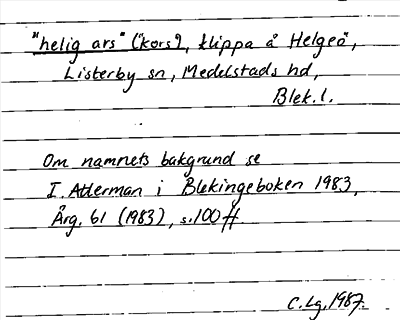 "helig ars" ("kors"), klippa å Helgeö,
Listerby sn, Medelstads hd,
Blek. l.
Om namnets bakgrund se
I. Atterman i Blekingeboken 1983,
Årg. 61 (1983), s. 100 ff.
C. Lg. 1987.